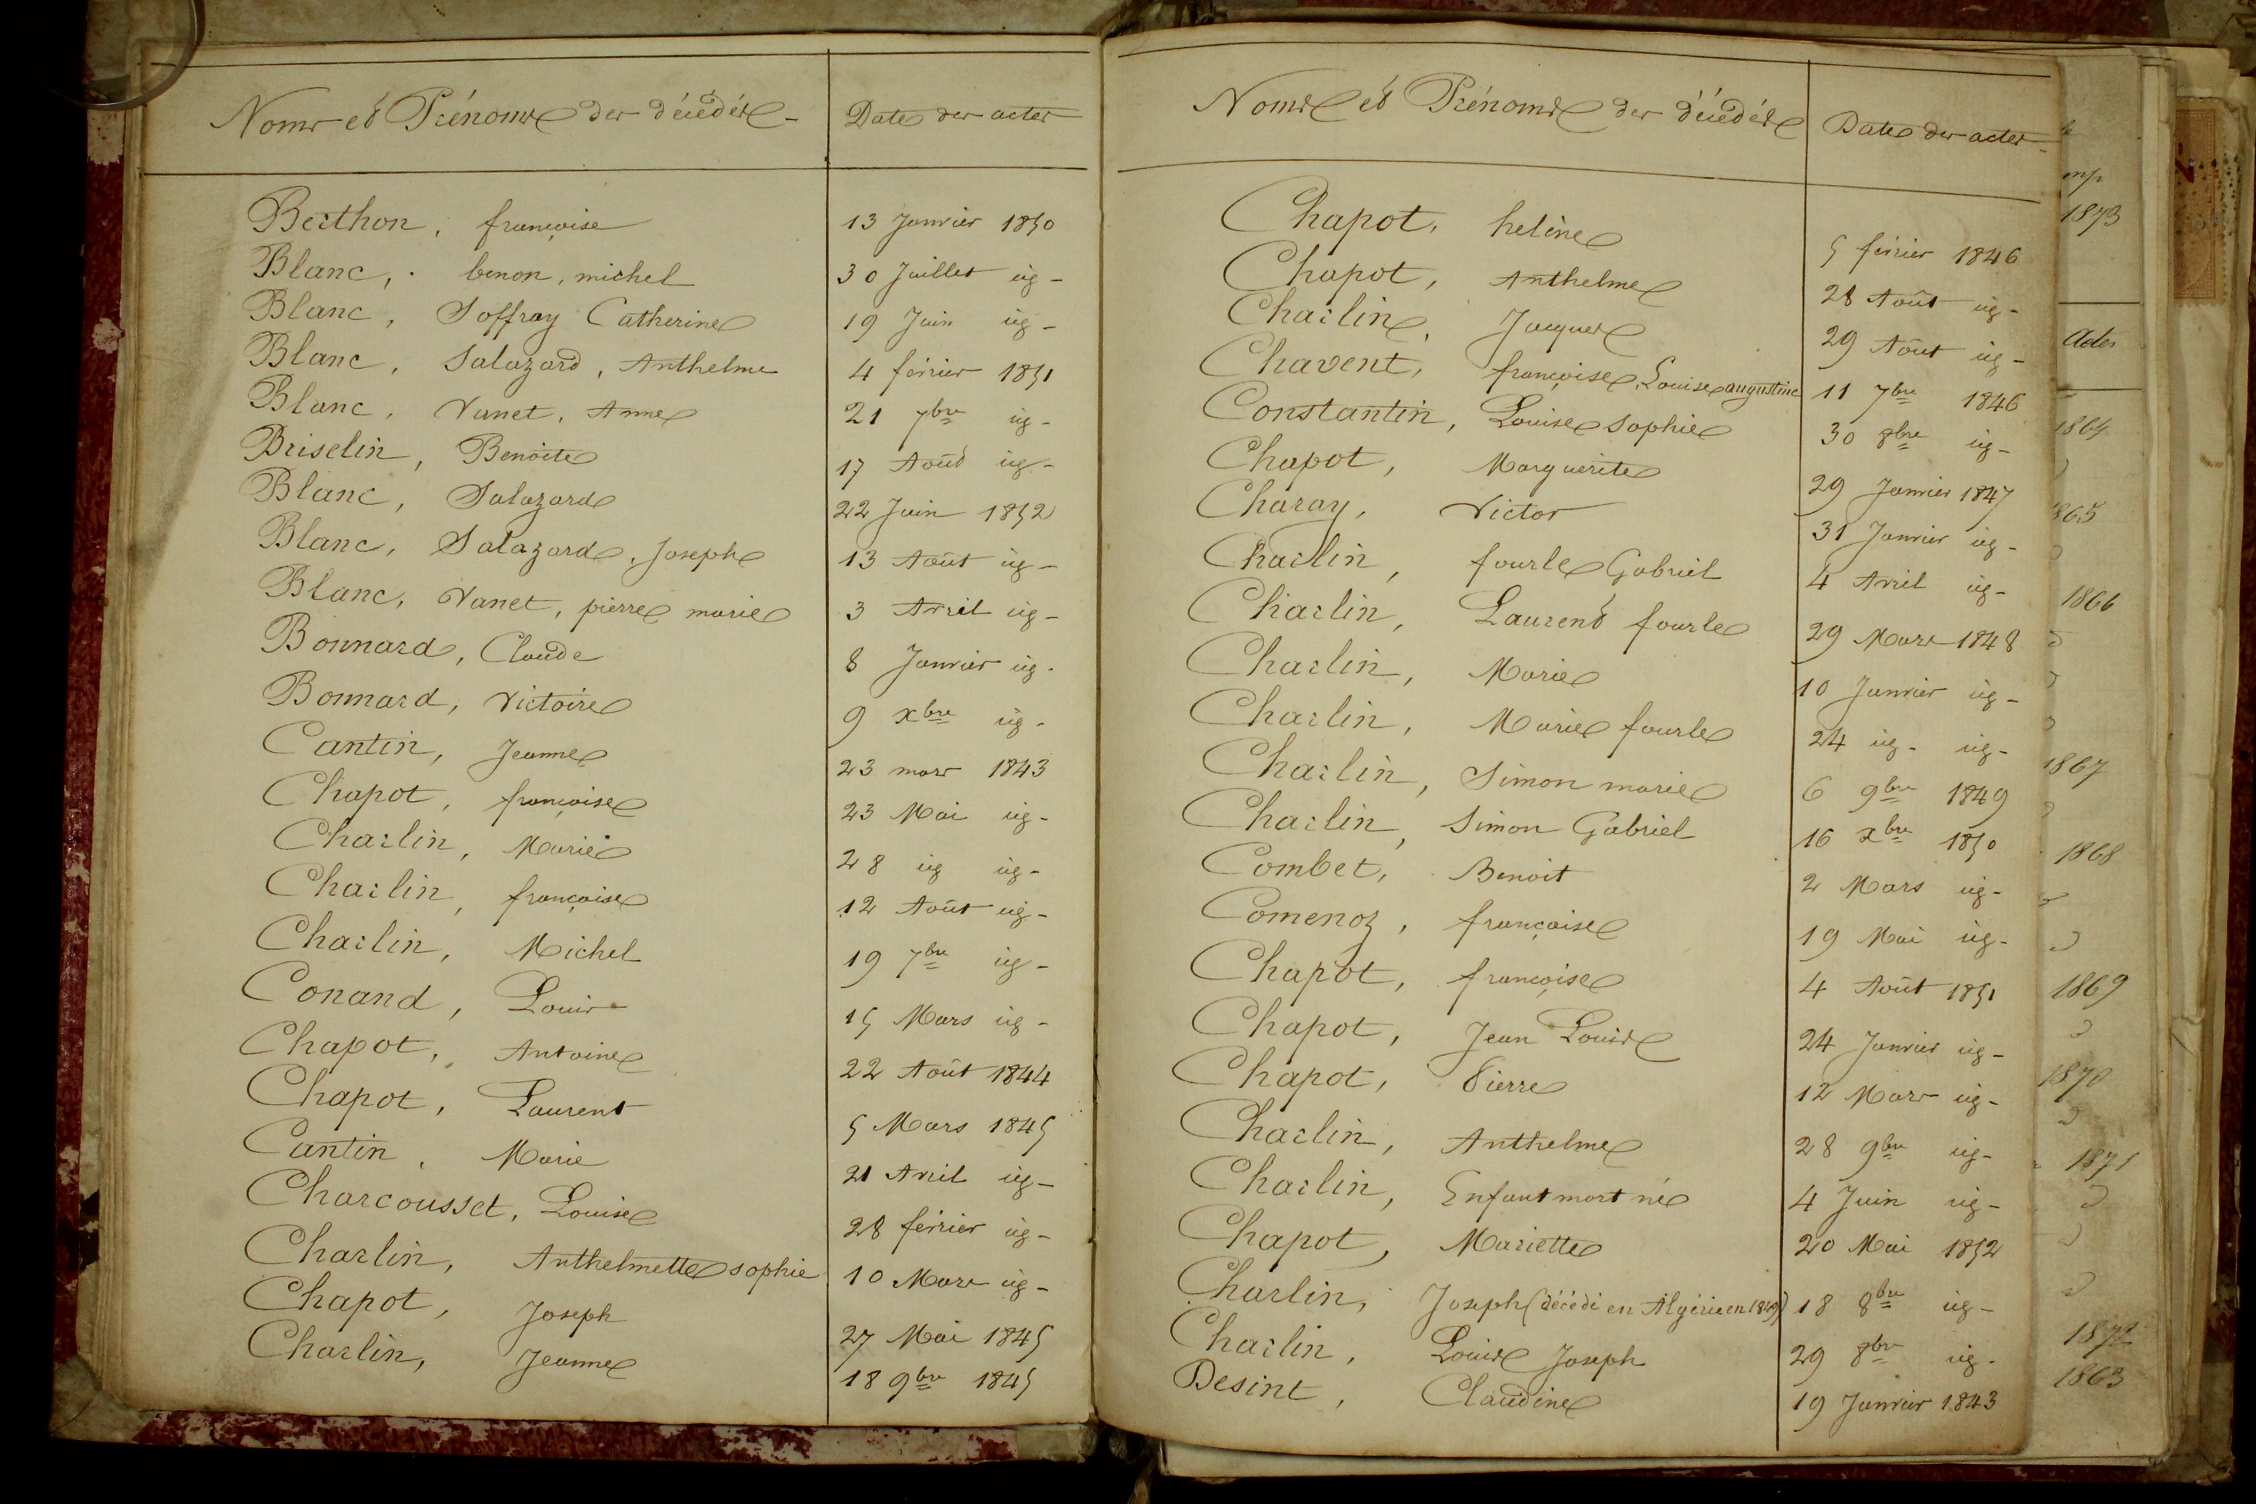 Noms et Prénoms des décédés - Date des actes
Berthon, françoise 13 Janvier 1850
Blanc, benon, michel 30 Juillet ig -
Blanc, Soffray Catherine 19 Juin ig -
Blanc, Salazard, Anthelme 4 février 1851
Blanc, Vanet, Anne 21 7bre ig -
Briselin, Benoite 17 Août ig -
Blanc, Salazard 22 Juin 1852
Blanc, Salazard, Joseph 13 Août ig -
Blanc, Vanet, pierre marie 3 Avril ig -
Bonnard, Claude 8 Janvier ig -
Bonnard, Victoire 9 xbre ig -
Cantin, Jeanne 23 mars 1843
Chapot, françoise 23 Mai ig -
Charlin, Marie 28 ig ig -
Charlin, françoise 12 Août ig -
Charlin, Michel 19 7bre ig -
Conand, Louis 15 Mars ig -
Chapot, Antoine 22 Août 1844
Chapot, Laurent 5 Mars 1845
Cantin, Marie 21 Avril ig -
Charcousset, Louise 28 février ig -
Charlin, Anthelmette sophie 10 Mars ig -
Chapot, Joseph 27 Mai 1845
Charlin, Jeanne 18 9bre 1845
Noms et Prénoms des décédés Date des actes -
Chapot, helène 5 février 1846
Chapot, Anthelme 28 Août ig -
Charlin, Jacques 29 Août ig -
Chavent, françoise, Louise augustine 11 7bre 1846
Constantin, Louise sophie 30 8bre ig -
Chapot, Marguerite 29 Janvier 1847
Charay, Victor 31 Janvier ig -
Charlin, fourle Gabriel 4 Avril ig -
Charlin, Laurent fourle 29 Mars 1848
Charlin, Marie 10 Janvier ig -
Charlin, Marie fourle 24 ig - ig -
Charlin, Simon marie 6 9bre 1849
Charlin, Simon Gabriel 16 xbre 1850
Combet, Benoit 2 Mars ig -
Comenoz, françoise 19 Mai ig -
Chapot, françoise 4 Août 1851
Chapot, Jean Louis 24 Janvier ig -
Chapot, Pierre 12 Mars ig -
Charlin, Anthelme 28 9bre ig -
Charlin, Enfant mort né 4 Juin ig -
Chapot, Mariette 20 Mai 1852
Charlin, Joseph (décédé en Algérie en 1849) 18 8bre ig -
Charlin, Louis Joseph 29 8bre ig -
Desint, Claudine 19 Janvier 1843
1873
Actes
1864
1865
1866
1867
1868
1869
1870
1871
1872
1863